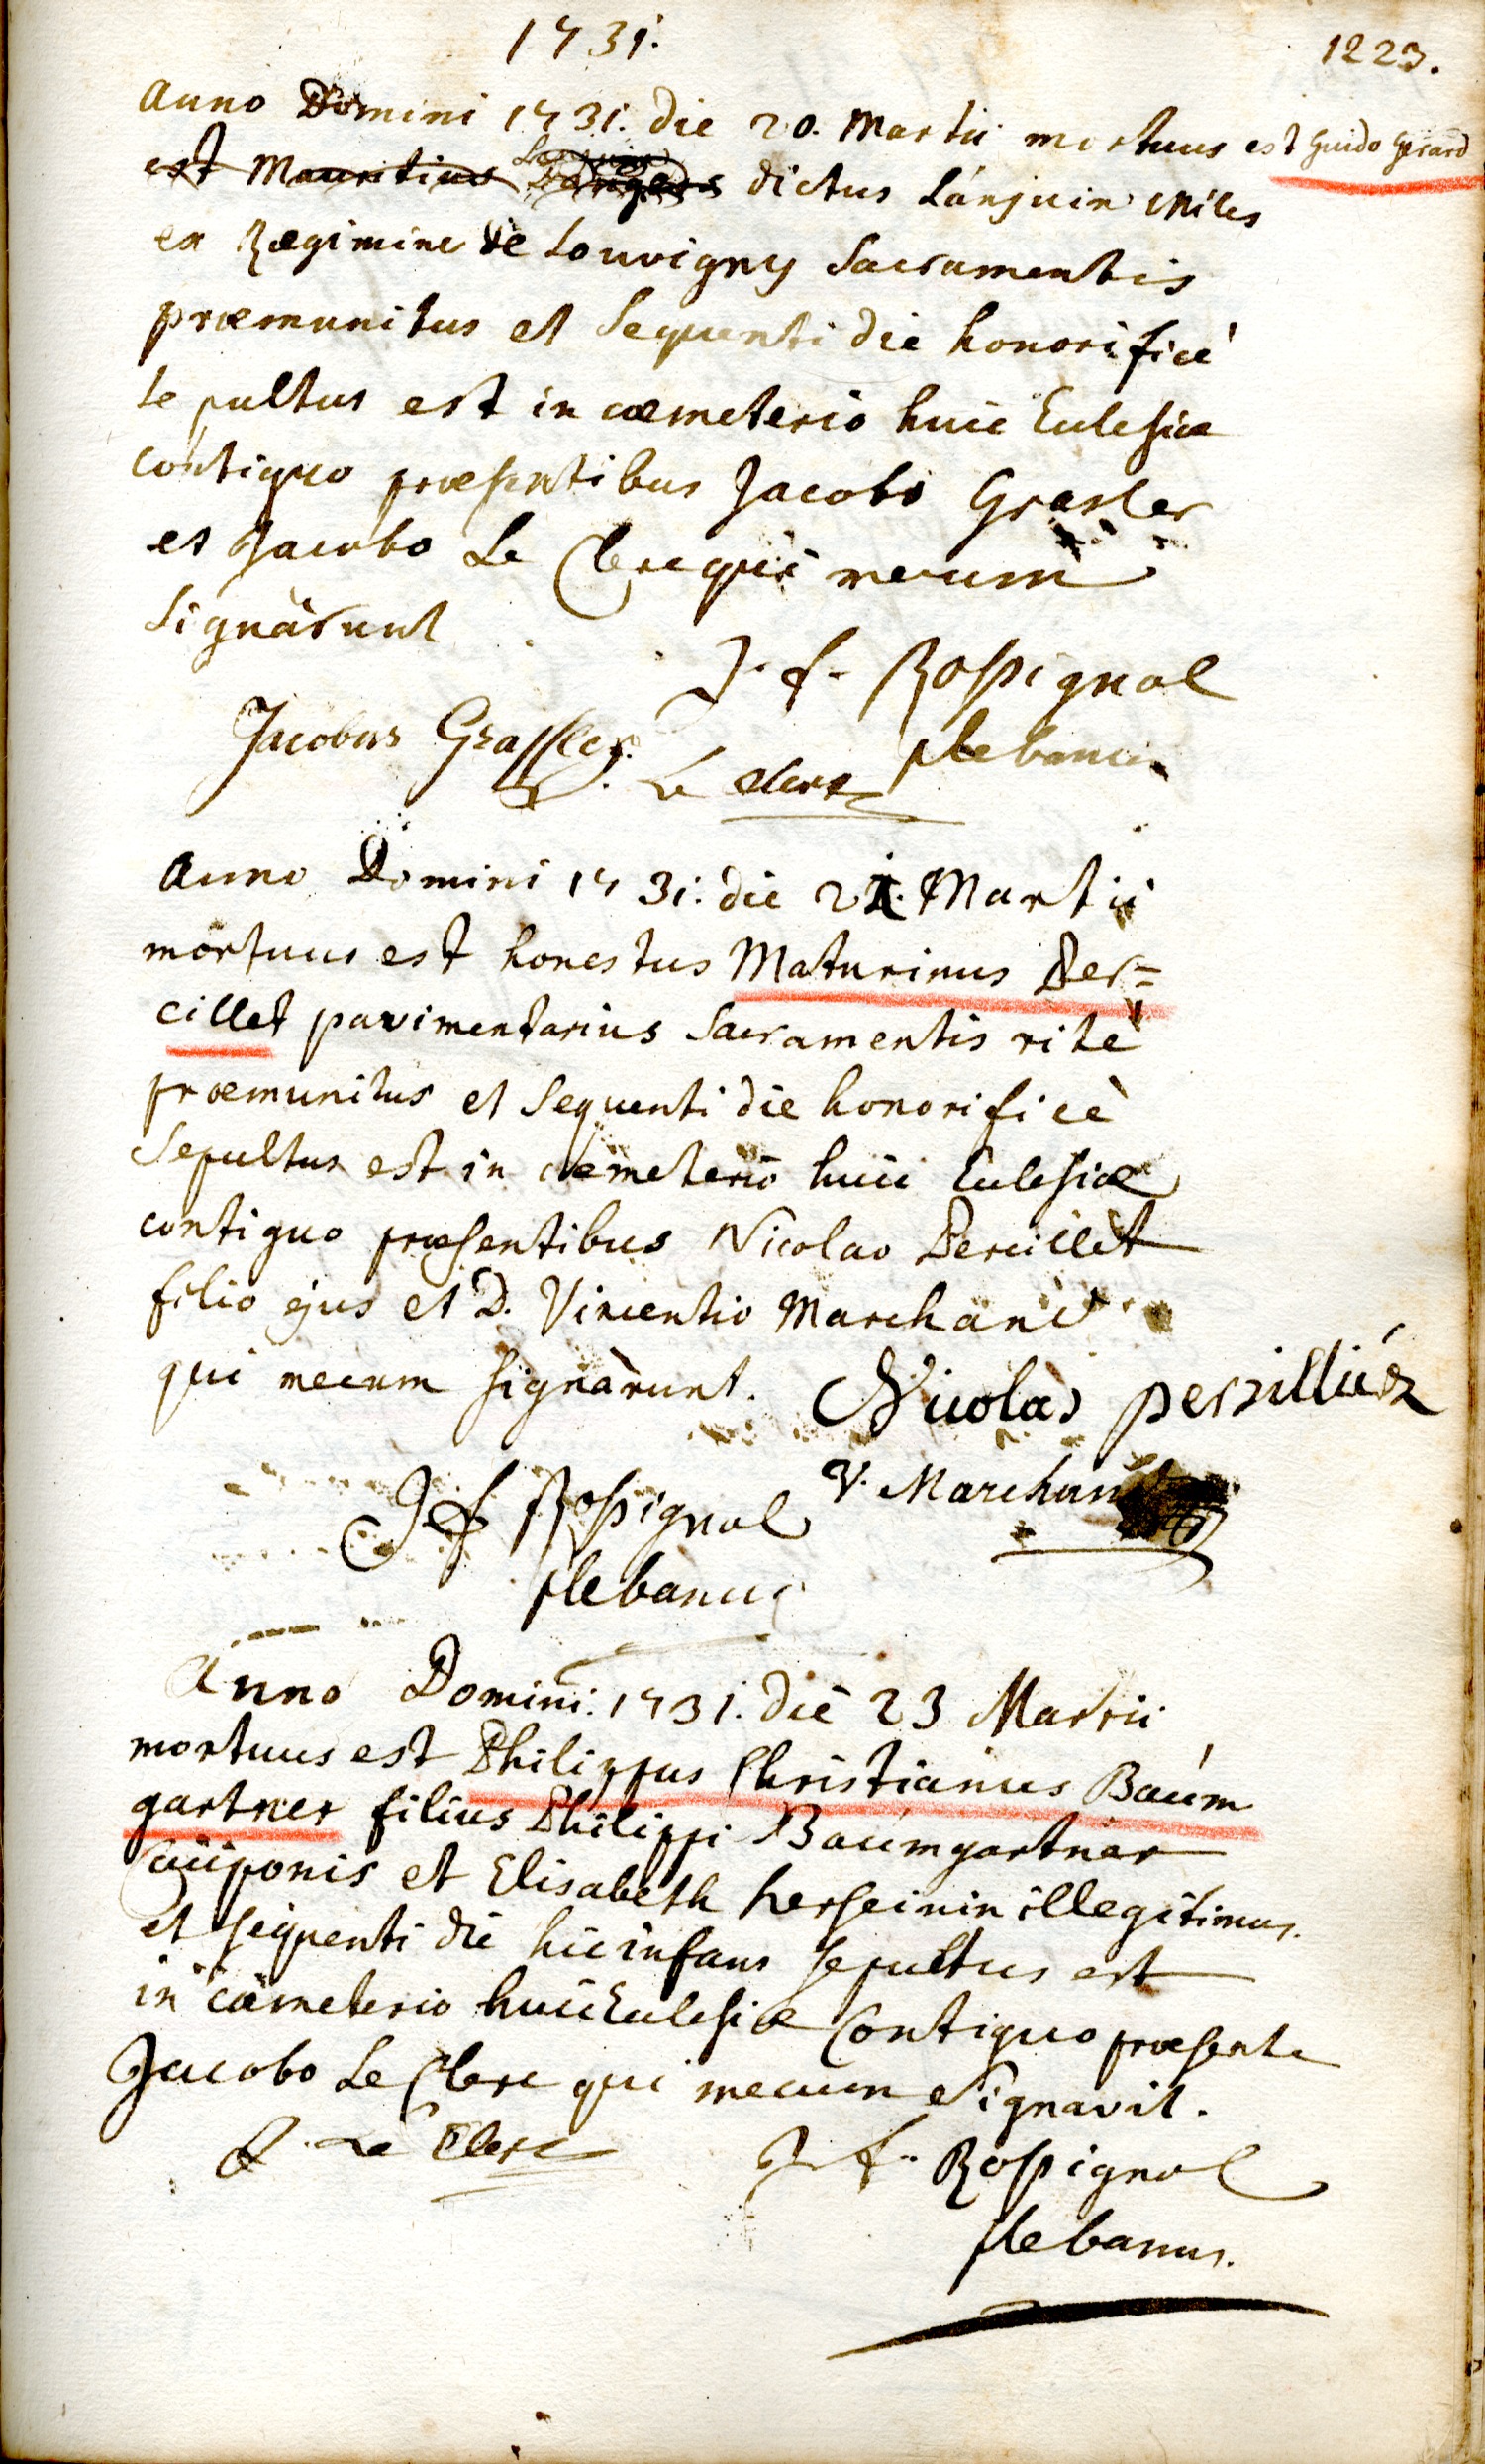 1731.
1223.
Anno Domini 1731. die 20. Martii mortuus est Guido Gerard
est Mauritius dictus Lánjuin miles
ex Regimine de Louvigny Sacramentis
præmunitus et Sequenti die honorificè
Sepultus est in cœmeterio huic Eclesiæ
contiguo præsentibus Jacobo Grasler
et Jacobo Le Clerc qui mecum
Signàrunt
J. f. Rossignol
Jacobus Grassler.
plebanus
J. Le clerc
Anno Domini 1731. die 21. Martii
mortuus est honestus Maturinus Ber=
cillet pavimentarius Sacramentis ritè
præmunitus et Sequenti die honorificè
Sepultus est in cœmeterio huic Eclesiæ
contiguo præsentibus Nicolao Bercillet
filio ejus et D. Vincentio Marchand
qui mecum signàrunt. Nicolas persilliéz
J. f Rossignol V. Marchand
plebanus
Anno Domini. 1731. die 23 Martii
mortuus est Philippus Christianus Baum
gartner filius Philippi Baumgartner
Cauponis et Elisabeth herseinin illegitimus.
et sequenti die hic infans sepultus est
in cœmeterio huic Eclesiæ Contiguo præsente
Jacobo Le Clerc qui mecum Signavit.
J. Le Clerc J. f. Rossignol
plebanus.